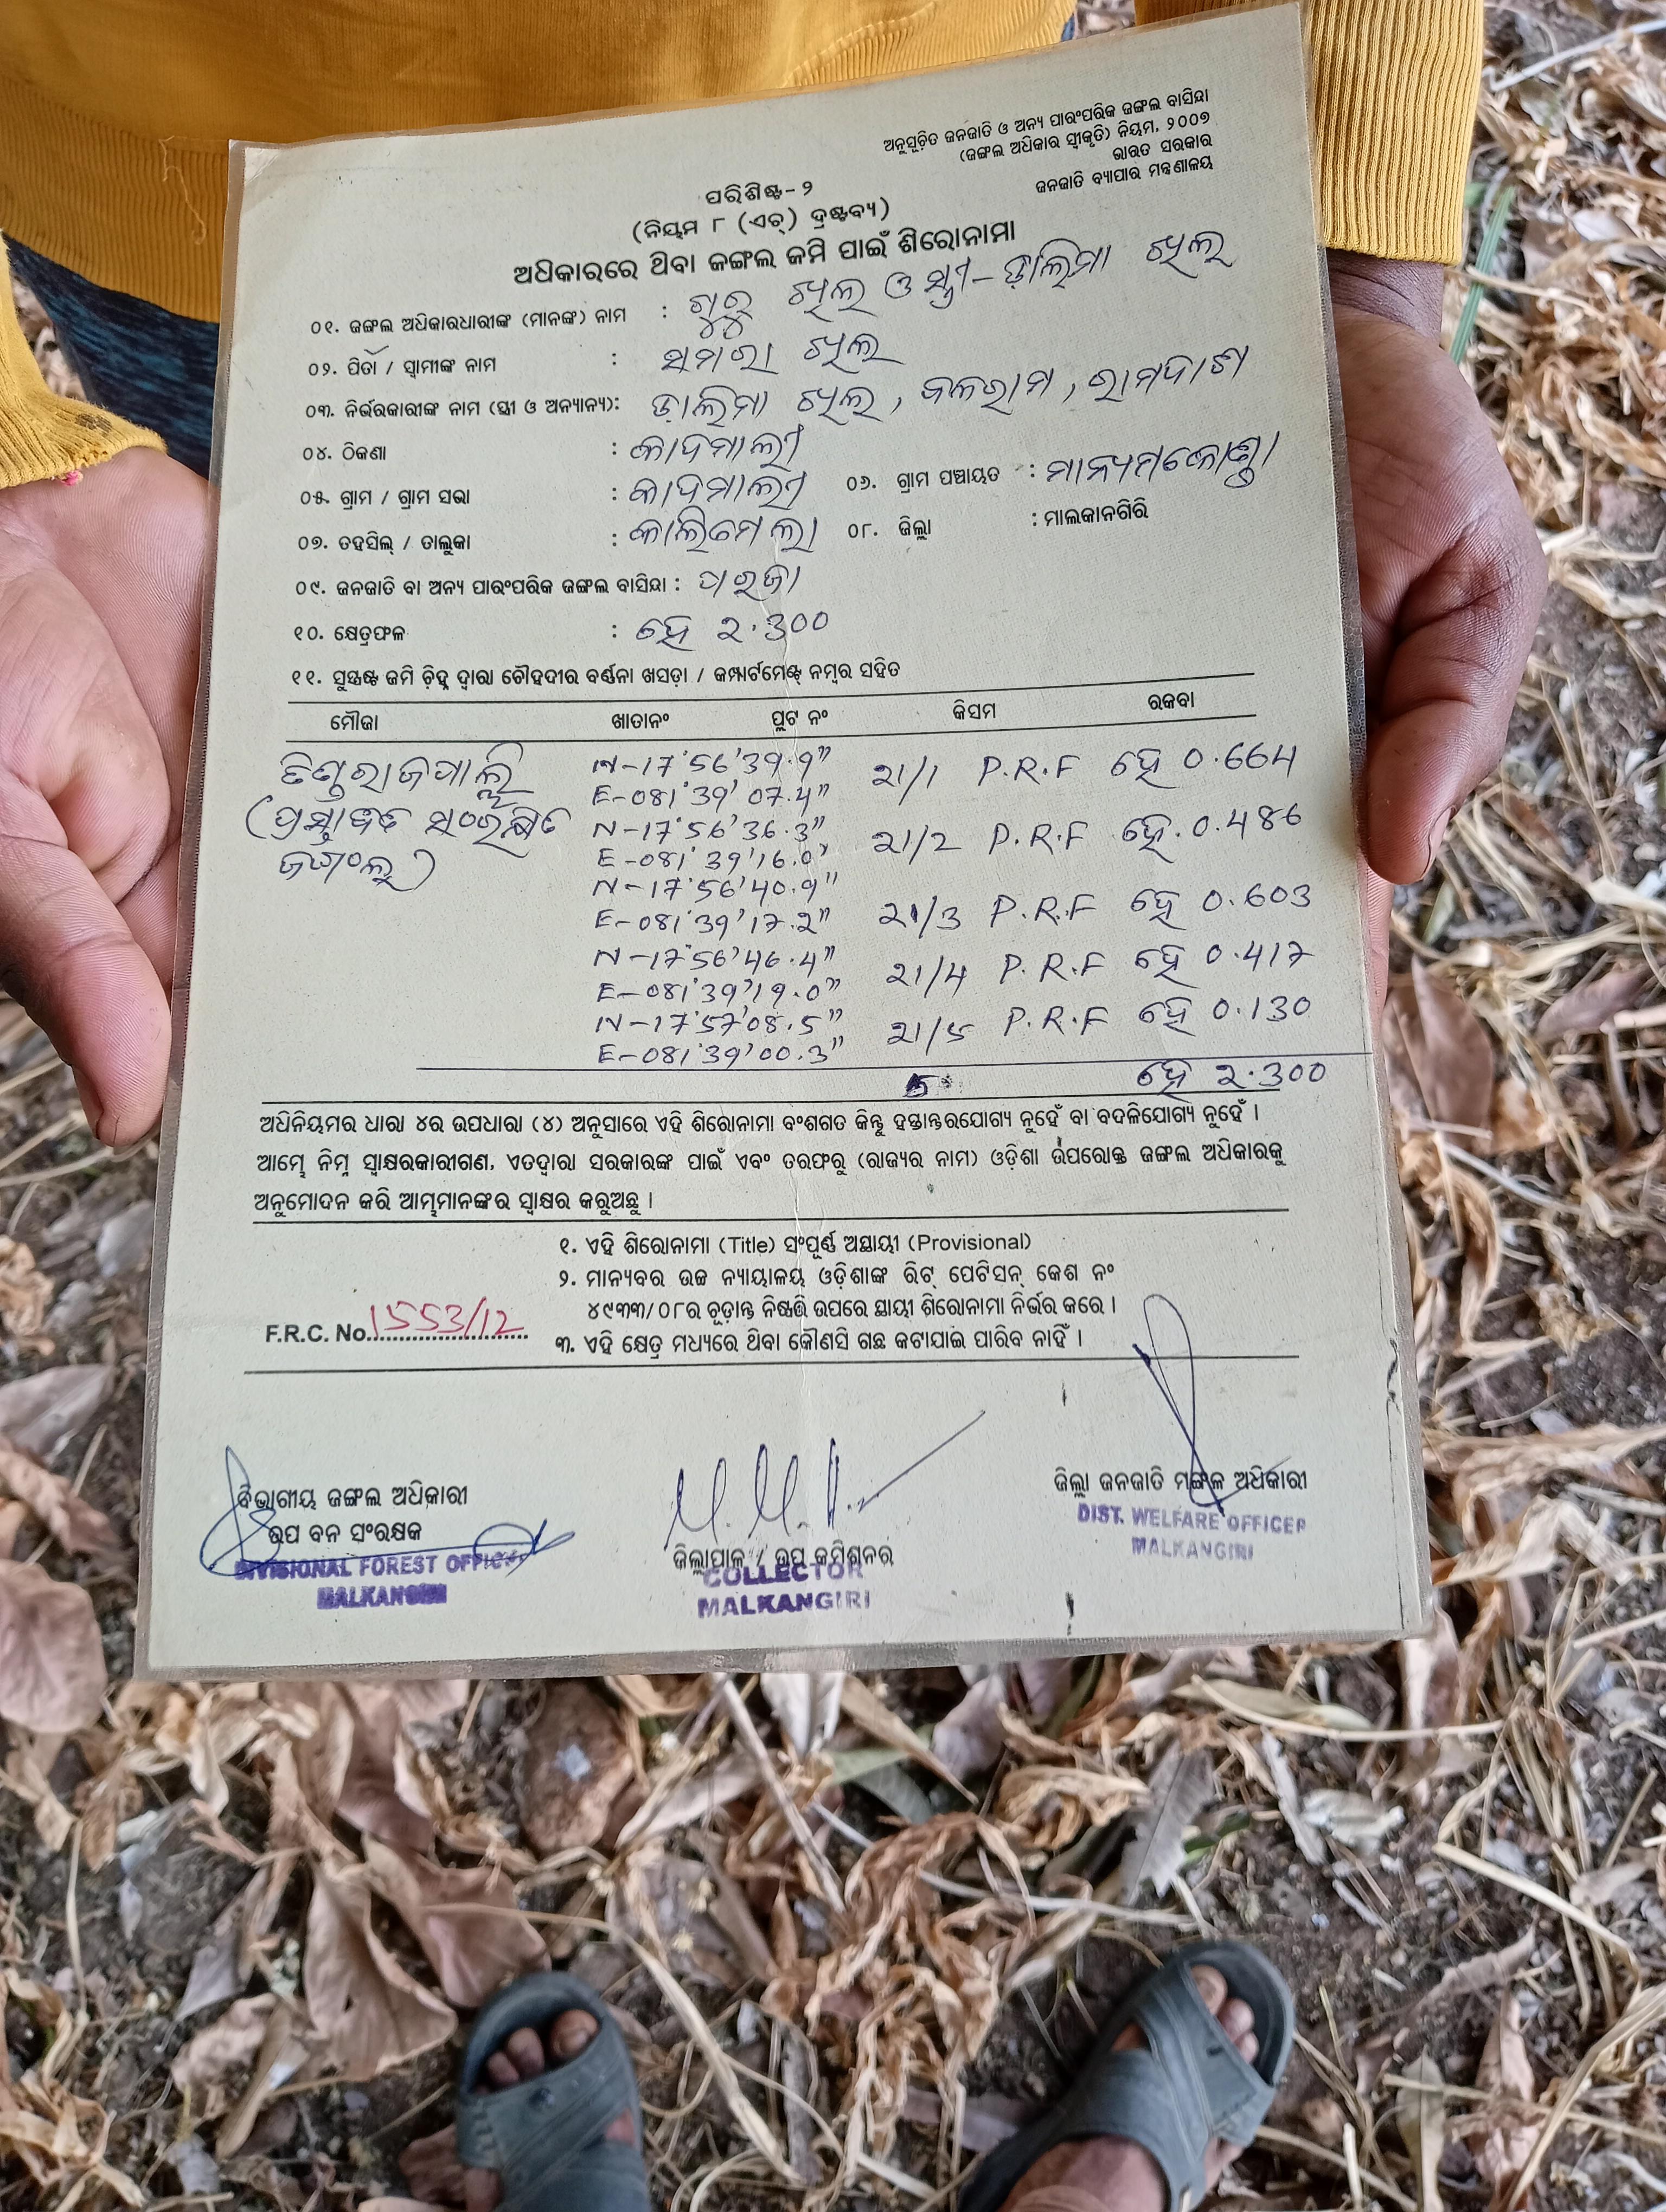 ଅନୁସୂଚିତ ଜନଜାତି ଓ ଅନ୍ୟ ପାରଂପରିକ ଜଙ୍ଗଲ ବାସିନ୍ଦା
(ଜଙ୍ଗଲ ଅଧିକାର ସ୍ୱୀକୃତି) ନିୟମ, ୨୦୦୭
ଭାରତ ସରକାର
ଜନଜାତି ବ୍ୟାପାର ମନ୍ତ୍ରଣାଳୟ
ପରିଶିଷ୍ଟ-୨
(ନିୟମ ୮ (ଏଚ୍) ଦ୍ରଷ୍ଟବ୍ୟ)
ଅଧିକାରରେ ଥିବା ଜଙ୍ଗଲ ଜମି ପାଇଁ ଶିରୋନାମା
୦୧. ଜଙ୍ଗଲ ଅଧିକାରଧାରୀଙ୍କ (ମାନଙ୍କ) ନାମ : ଗୁରୁ ଖିଲ ଓ ସ୍ତ୍ରୀ-ଡ଼ାଲିମା ଖିଲ
୦୨. ପିତା / ସ୍ୱାମୀଙ୍କ ନାମ : ସମରା ଖିଲ
୦୩. ନିର୍ଭରକାରୀଙ୍କ ନାମ (ସ୍ତ୍ରୀ ଓ ଅନ୍ୟାନ୍ୟ): ଡ଼ାଲିମା ଖିଲ, ବଳରାମ, ରାମଦାସ
୦୪. ଠିକଣା : କାଦମାଲୀ
୦୫. ଗ୍ରାମ / ଗ୍ରାମ ସଭା : କାଦମାଲୀ ୦୬. ଗ୍ରାମ ପଞ୍ଚାୟତ : ମାନ୍ୟମକୋଣ୍ଡା
୦୭. ତହସିଲ୍ / ତାଲୁକା : କାଲିମେଲା ୦୮. ଜିଲ୍ଲା : ମାଲକାନଗିରି
୦୯. ଜନଜାତି ବା ଅନ୍ୟ ପାରଂପରିକ ଜଙ୍ଗଲ ବାସିନ୍ଦା : ପରଜା
୧୦. କ୍ଷେତ୍ରଫଳ : ହେ ୨.୩00
୧୧. ସୁସ୍ପଷ୍ଟ ଜମି ଚିହ୍ନ ଦ୍ୱାରା ଚୌହଦୀର ବର୍ଣ୍ଣନା ଖସଡ଼ା / କମ୍ପାର୍ଟମେଣ୍ଟ୍ ନମ୍ବର ସହିତ
ମୌଜା ଖାତାନଂ ପ୍ଲଟ ନଂ କିସମ ରକବା
N-17°56'39.9"
E-081°39'07.4" 21/1 P.R.F ହେ 0.664
(ପ୍ରସ୍ତାବିତ ସଂରକ୍ଷିତ
ଜଙ୍ଗଲ)
N-17°56'36.3"
E-081°39'16.0" 21/2 P.R.F ହେ. 0.486
N-17°56'40.9"
E-081°39'17.2" 21/3 P.R.F ହେ 0.603
N-17°56'46.4"
E-081°39'19.0" 21/4 P.R.F ହେ 0.417
N-17°57'08.5"
E-081°39'00.3" 21/5 P.R.F ହେ 0.130
5 ହେ 2.300
ଅଧିନିୟମର ଧାରା ୪ର ଉପଧାରା (୪) ଅନୁସାରେ ଏହି ଶିରୋନାମା ବଂଶଗତ କିନ୍ତୁ ହସ୍ତାନ୍ତରଯୋଗ୍ୟ ନୁହେଁ ବା ବଦଳିଯୋଗ୍ୟ ନୁହେଁ ।
ଆମ୍ଭେ ନିମ୍ନ ସ୍ୱାକ୍ଷରକାରୀଗଣ, ଏତଦ୍ୱାରା ସରକାରଙ୍କ ପାଇଁ ଏବଂ ତରଫରୁ (ରାଜ୍ୟର ନାମ) ଓଡ଼ିଶା ଉପରୋକ୍ତ ଜଙ୍ଗଲ ଅଧିକାରକୁ
ଅନୁମୋଦନ କରି ଆମ୍ଭମାନଙ୍କର ସ୍ୱାକ୍ଷର କରୁଅଛୁ ।
୧. ଏହି ଶିରୋନାମା (Title) ସଂପୂର୍ଣ୍ଣ ଅସ୍ଥାୟୀ (Provisional)
୨. ମାନ୍ୟବର ଉଚ୍ଚ ନ୍ୟାୟାଳୟ ଓଡ଼ିଶାଙ୍କ ରିଟ୍ ପେଟିସନ୍ କେଶ ନଂ
୪୯୩୩/୦୮ର ଚୂଡ଼ାନ୍ତ ନିଷ୍ପତ୍ତି ଉପରେ ସ୍ଥାୟୀ ଶିରୋନାମା ନିର୍ଭର କରେ ।
F.R.C. No.1553/12
୩. ଏହି କ୍ଷେତ୍ର ମଧ୍ୟରେ ଥିବା କୌଣସି ଗଛ କଟାଯାଇ ପାରିବ ନାହିଁ ।
ବିଭାଗୀୟ ଜଙ୍ଗଲ ଅଧିକାରୀ
ଉପ ବନ ସଂରକ୍ଷକ
DIVISIONAL FOREST OFFICER
MALKANGIRI
ଜିଲ୍ଲାପାଳ / ଉପ କମିଶନର
COLLECTOR
MALKANGIRI
ଜିଲ୍ଲା ଜନଜାତି ମଙ୍ଗଳ ଅଧିକାରୀ
DIST. WELFARE OFFICER
MALKANGIRI